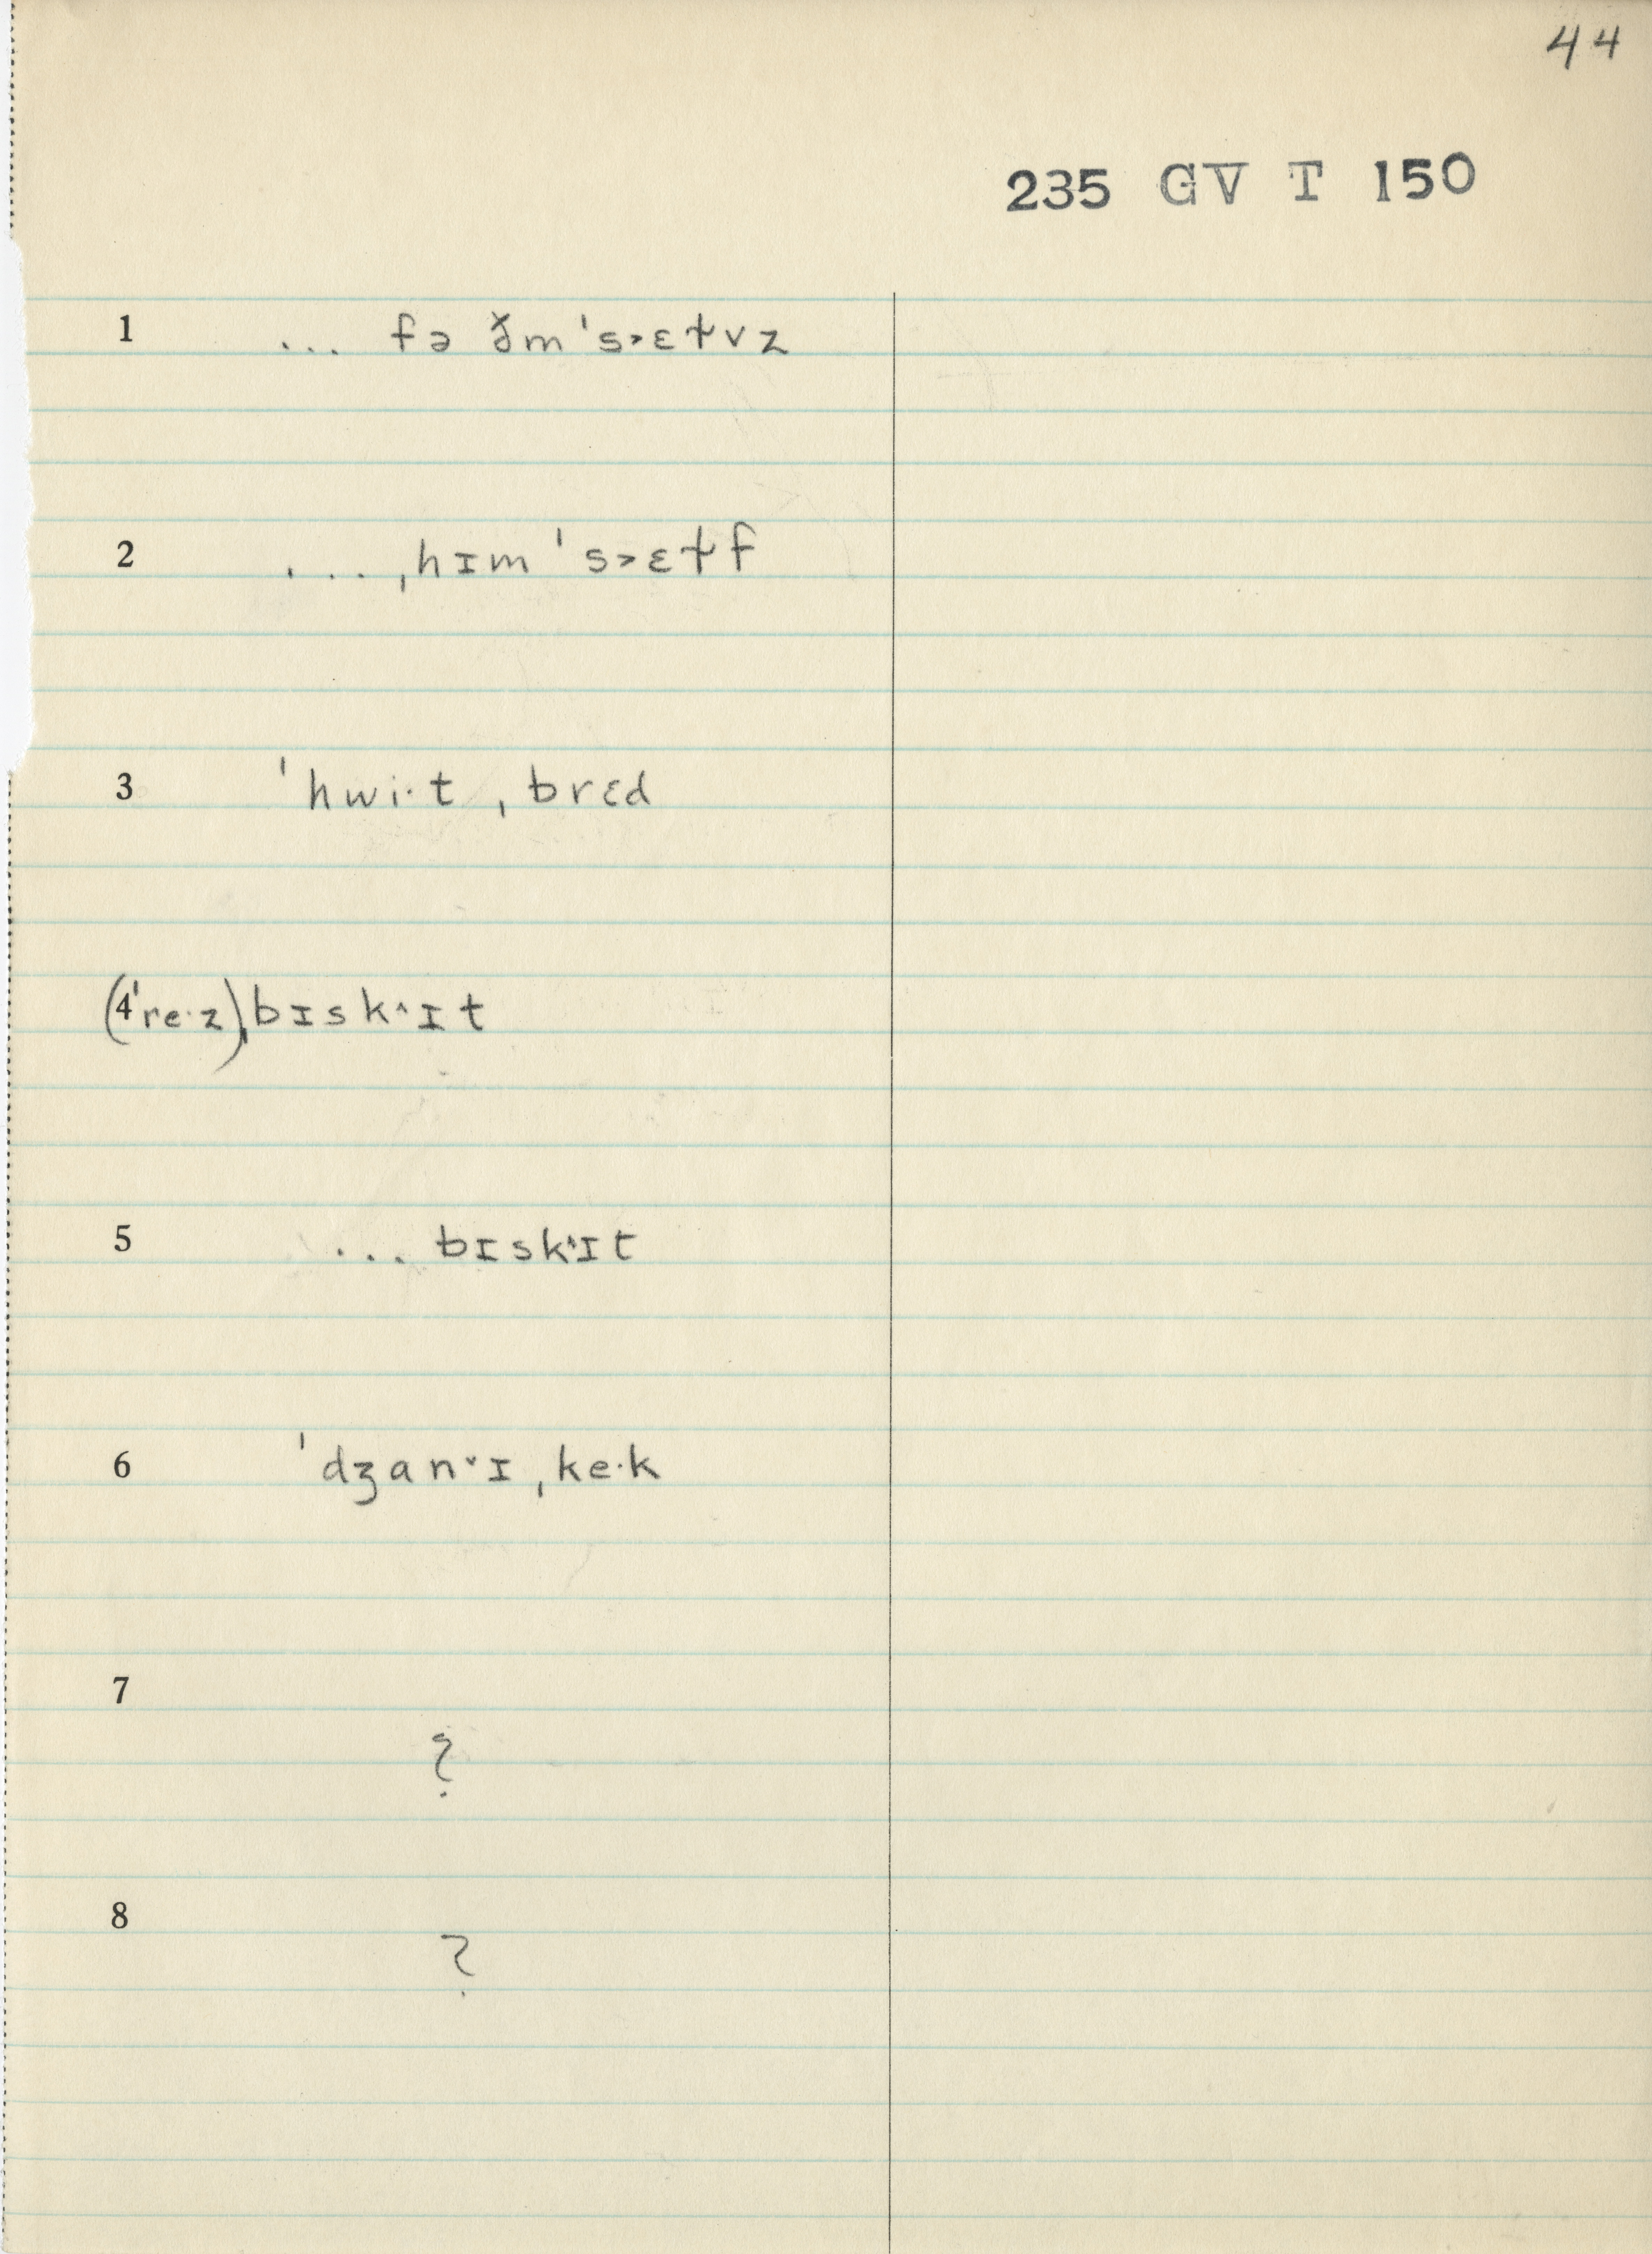 44
235 GV T 150
1 ... fə ðm ˈs˃ɛɫvz
2 ... ˌhɪm ˈs˃ɛɫf
3 ˈhwi·t ˌbrɛd
4 (ˈre·z)ˌbɪsk˄ɪt
5 ... bɪsk˄ɪt
6 ˈdʒan˅ɪ ˌke·k
7
?
8
?